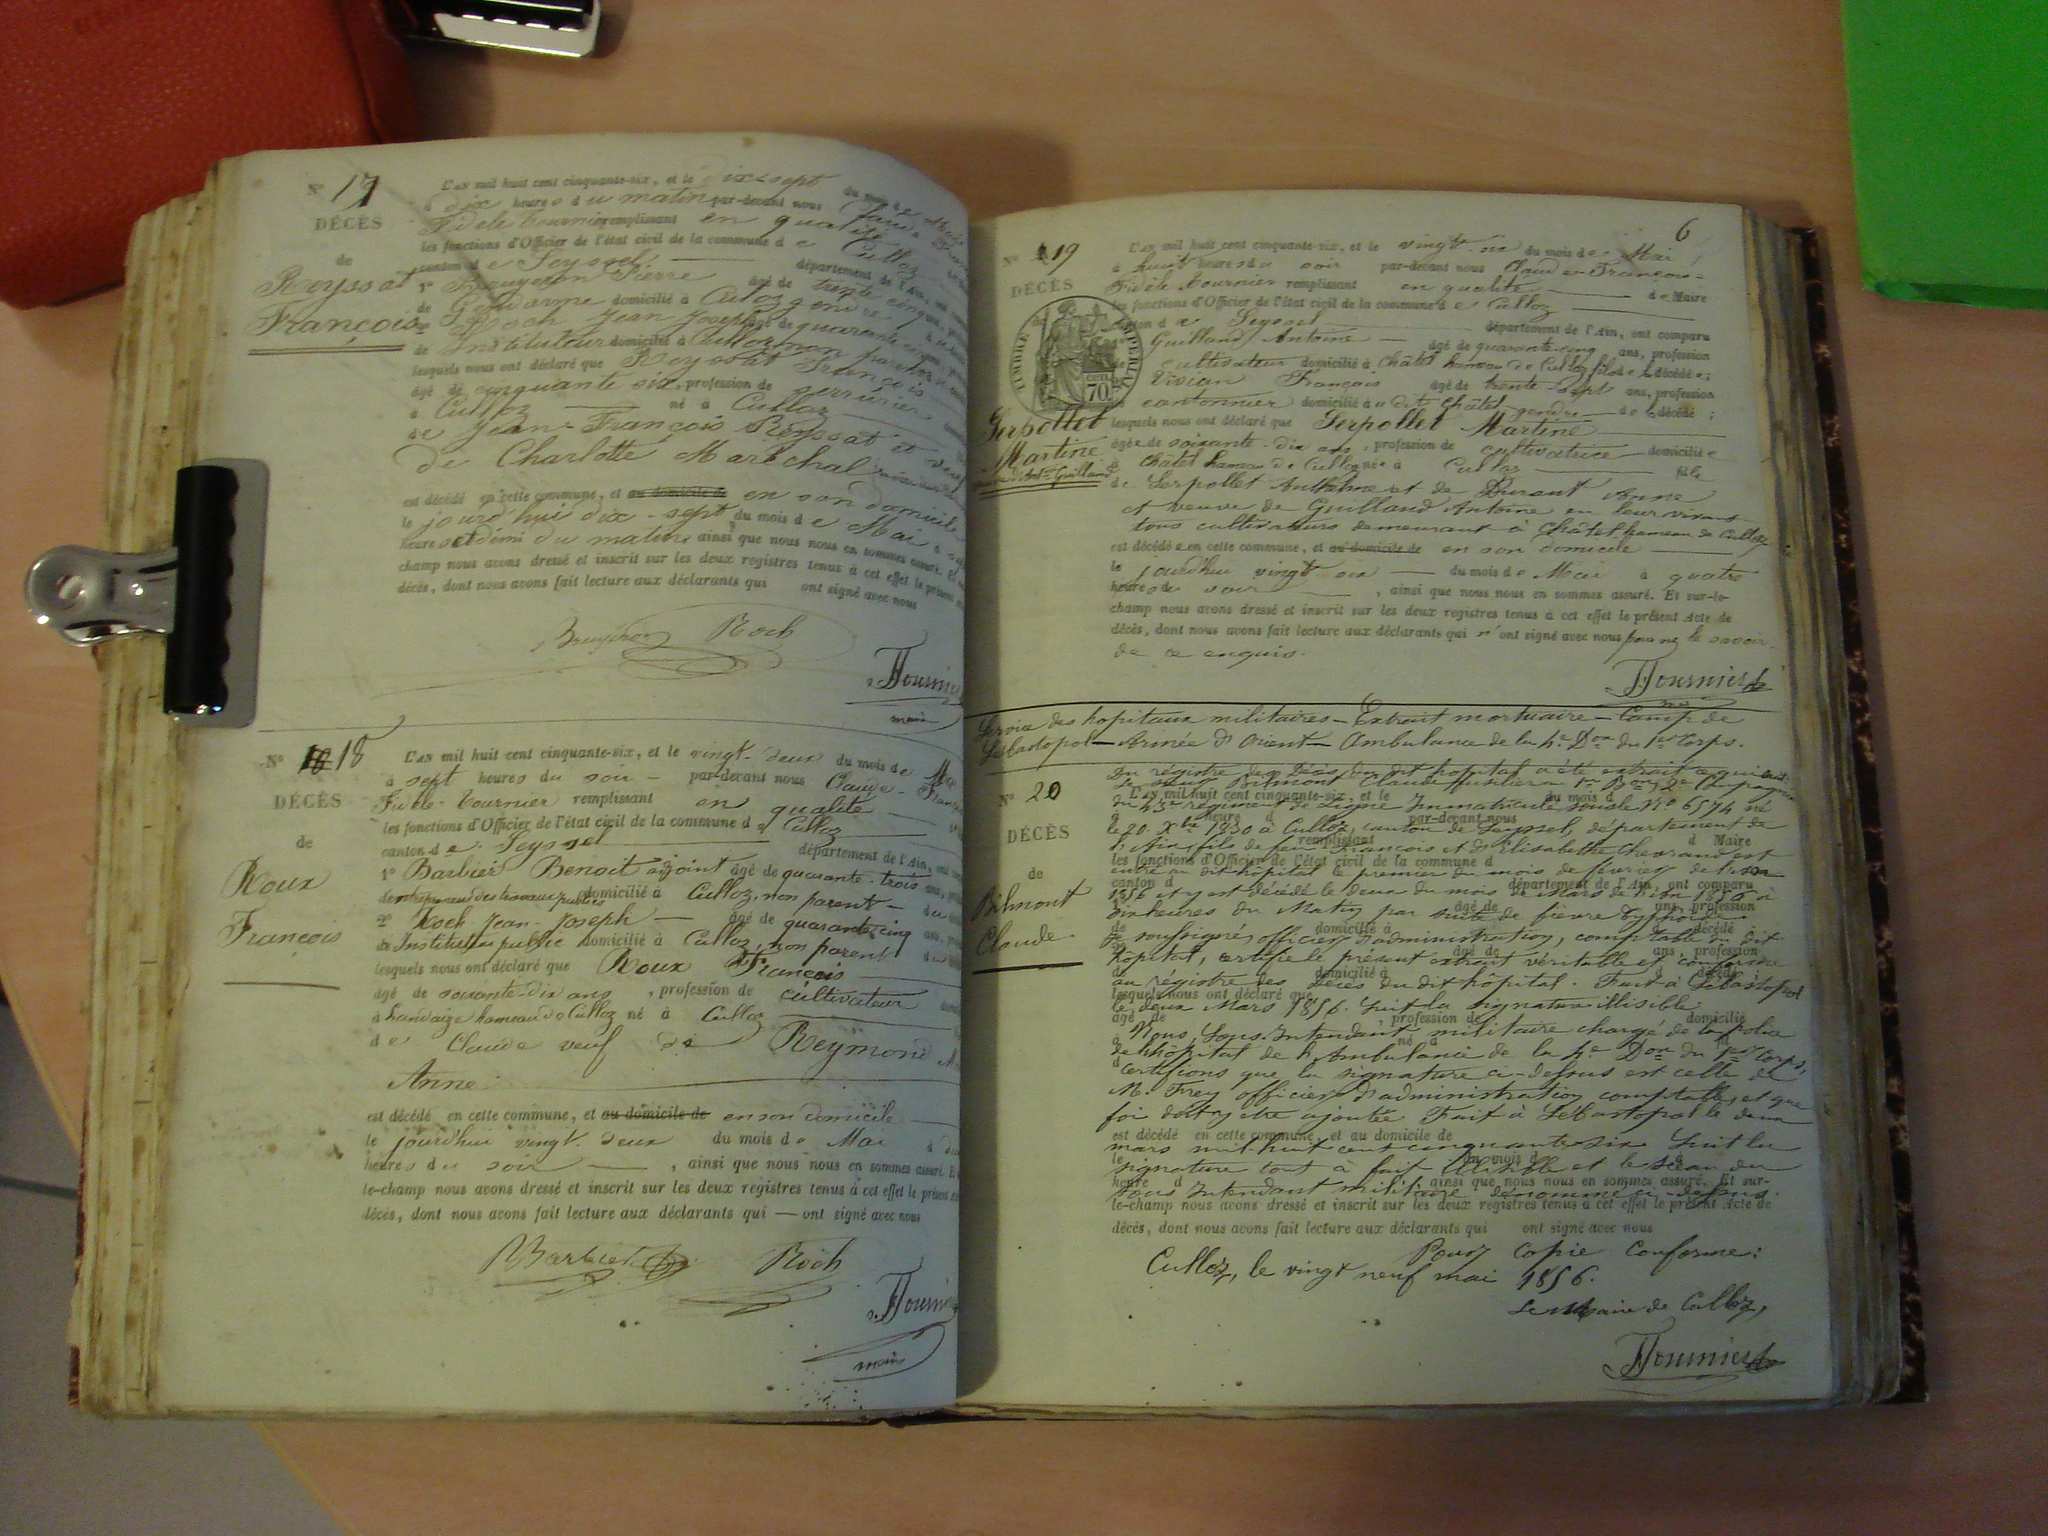 N° 17
DÉCÈS
de
Reyssat
François
L'an mil huit cent cinquante-six, et le dix-sept du mois de
à dix heures du matin par-devant nous
Fidèle Tournier remplissant en qualité
les fonctions d'Officier de l'état civil de la commune de Culloz
canton de Seyssel département de l'Ain, ont
1° Pierre âgé de trente cinq
de Gendarme domicilié à Culoz
2° Roch Jean Joseph âgé de quarante
de Instituteur domicilié à Culloz non parent
lesquels nous ont déclaré que Reyssat François
âgé de cinquante six, profession de serrurier
à Culloz né à Culloz
de Jean-François Reyssat et
de Charlotte Maréchal
est décédé en cette commune, et au domicile de en son domicile
le jourd'hui dix-sept du mois de Mai à
heures et demi du matin, ainsi que nous nous en sommes assuré. Et
champ nous avons dressé et inscrit sur les deux registres tenus à cet effet le présent
décès, dont nous avons fait lecture aux déclarants qui ont signé avec nous
Roch
Tournier
maire
N° 18
DÉCÈS
de
Roux
François
L'an mil huit cent cinquante-six, et le vingt-deux du mois de Mai
à sept heures du soir par-devant nous Claude-François
Fidèle Tournier remplissant en qualité
les fonctions d'Officier de l'état civil de la commune de Culloz
canton de Seyssel département de l'Ain, ont
1° Barbier Benoit adjoint âgé de quarante-trois ans,
de entrepreneur des travaux publics domicilié à Culloz, non parent
2° Roch Jean-Joseph âgé de quarante cinq ans,
de Instituteur public domicilié à Culloz, non parent
lesquels nous ont déclaré que Roux François
âgé de soixante-dix ans, profession de cultivateur
à hameau de Culloz né à Culloz
de Claude veuf de Reymond
Anne
est décédé en cette commune, et au domicile de en son domicile
le jourd'hui vingt-deux du mois de Mai à
heures du soir, ainsi que nous nous en sommes assuré. Et
le-champ nous avons dressé et inscrit sur les deux registres tenus à cet effet le présent
décès, dont nous avons fait lecture aux déclarants qui ont signé avec nous
Barbier Roch
Tournier
maire
6
N° 19
DÉCÈS
TIMBRE IMPÉRIAL
CENT. 70
Serpollet
Martine
veuve d'Ant.ne Guilland
L'an mil huit cent cinquante-six, et le vingt-six du mois de Mai
à huit heures du soir par-devant nous Claude-François
Fidèle Tournier remplissant en qualité de Maire
les fonctions d'Officier de l'état civil de la commune de Culloz
canton de Seyssel département de l'Ain, ont comparu
Guilland Antoine âgé de quarante-cinq ans, profession
cultivateur domicilié à Châtel hameau de Culloz fils de la décédée;
Vivian François âgé de trente-sept ans, profession
de cantonnier domicilié au dit Châtel gendre de la décédé;
lesquels nous ont déclaré que Serpollet Martine
âgée de soixante-dix ans, profession de cultivatrice domiciliée
à Châtel hameau de Culloz née à Culloz fille
de Serpollet Anthelme et de Durant Anne
et veuve de Guilland Antoine en leur vivant
tous cultivateurs demeurant à Châtel hameau de Culloz
est décédée en cette commune, et au domicile de en son domicile
le jourd'hui vingt six du mois de Mai à quatre
heures du soir, ainsi que nous nous en sommes assuré. Et sur-le-
champ nous avons dressé et inscrit sur les deux registres tenus à cet effet le présent Acte de
décès, dont nous avons fait lecture aux déclarants qui n'ont signé avec nous pour ne le savoir
de ce enquis.
Tournier
Service des hopitaux militaires — Extrait mortuaire — Camp de
Sébastopol — Armée d'Orient — Ambulance de la 4.e D.on du 1.er Corps.
N° 20
DÉCÈS
de
Bilmont
Claude
Du régistre des Décès du dit hopital a été extrait ce qui suit:
Le sieur Bilmont Claude fusilier 1.er B.on 2.e Compagnie
du 43.e régiment de Ligne Immatriculé sous le N° 6574 né
le 20 X.bre 1830 à Culloz, canton de Seyssel, département de
l'Ain, fils de feu François et d'Elisabeth est
entré au dit hopital le premier du mois de février de l'an
1856 et y est décédé le deux du mois de Mars de l'an 1856 à
six heures du Matin par suite de fièvre typhoïde
Je soussigné officier d'administration, comptable du dit
hopital, certifie le présent extrait véritable et conforme
au régistre des Décès du dit hôpital. Fait à Sébastopol
le deux Mars 1856. Suit la signature illisible.
Nous, Sous-Intendant militaire chargé de la police
de l'hôpital de l'Ambulance de la 4.e D.on du 1.er Corps,
certifions que la signature ci-dessus est celle de
M. Frey officier d'administration comptable, et que
foi doit y être ajoutée Fait à Sébastopol le deux
mars mil huit cent cinquante-six Suit la
signature tout à fait illisible et le sceau du
Sous-Intendant militaire dénommé ci-dessus.
L'an mil huit cent cinquante-six, et le du mois d
à heure d par-devant nous
remplissant d Maire
les fonctions d'Officier de l'état civil de la commune d
canton d département de l'Ain, ont comparu
âgé de ans, profession
de domicilié à d décédé ;
âgé de ans, profession
de domicilié à d décédé ;
lesquels nous ont déclaré que
âgé de , profession de domicilié
à né à
est décédé en cette commune, et au domicile de
le du mois d à
heure d ainsi que nous nous en sommes assuré. Et sur-
le-champ nous avons dressé et inscrit sur les deux registres tenus à cet effet le présent Acte de
décès, dont nous avons fait lecture aux déclarants qui ont signé avec nous
Pour Copie Conforme:
Culloz, le vingt neuf mai 1856.
Le Maire de Culloz,
Tournier